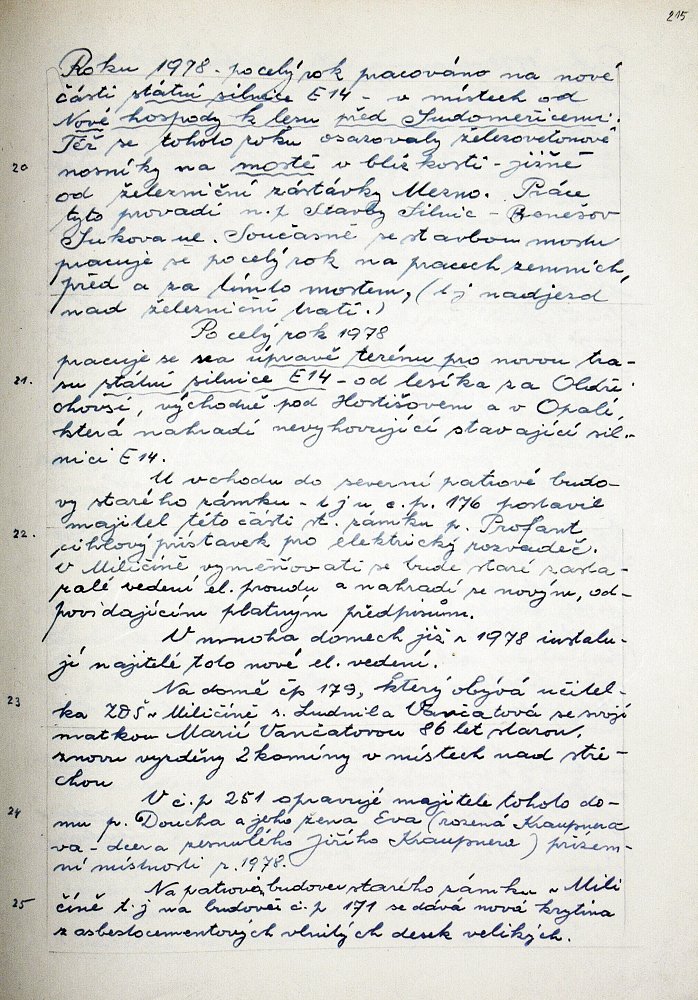 215
Roku 1978 - po celý rok pracováno na nové
části státní silnice E14 - v místech od
Nové hospody k lesu před Sudoměřicemi.
Též se tohoto roku osazovaly železovetonové
20 nosníky na mostě v blízkosti - jižně
od železniční zástávky Mezno. Práce
tyto provadí n.p Stavby Silnic - Benešov
Současně se stavbou mostu
pracuje se po celý rok na pracech zemních,
před a za tímto mostem, (t j nadjezd
nad železniční tratí.)
Po celý rok 1978
pracuje se na úpravě terénu pro novou tra-
21. su státní silnice E14 - od lesíka za Oldři-
chovsí, východně pod Hostišovem a v Opalí,
která nahradí nevyhovující stavající sil-
nici E14.
U vchodu do severní patrové budo-
vy starého zámku - t j u č.p. 176 postavil
majitel této části st. zámku p. Profant
22. cihlový přístavek pro elektrický rozvaděč.
V Miličíně vyměňovati se bude staré zasta-
ralé vedení el. proudu a nahradí se novým, od-
povídajícím platným předpisům.
V mnoha domech již r 1978 instalu-
jí majitelé toto nové el. vedení.
23 Na domě čp 179, který obývá učitel-
ka ZDŠ v Miličíně s. Ludmila Vančatová se svojí
matkou Marií Vančatovou 86 let starou,
znovu vyzděny 2 komíny v místech nad stře-
chou
24 V č.p 251 opravují majitele tohoto do-
mu p. Doucha a jeho žena Eva (rozená Kraupnero
va - dcera zesnulého Jiřího Kraupnera) přízem-
ní místnosti r. 1978.
Na patrové budově starého zámku v Mili
25 číně t.j na budově č.p 171 se dává nová krytina
z asbestocementových vlnitých desek velikých.